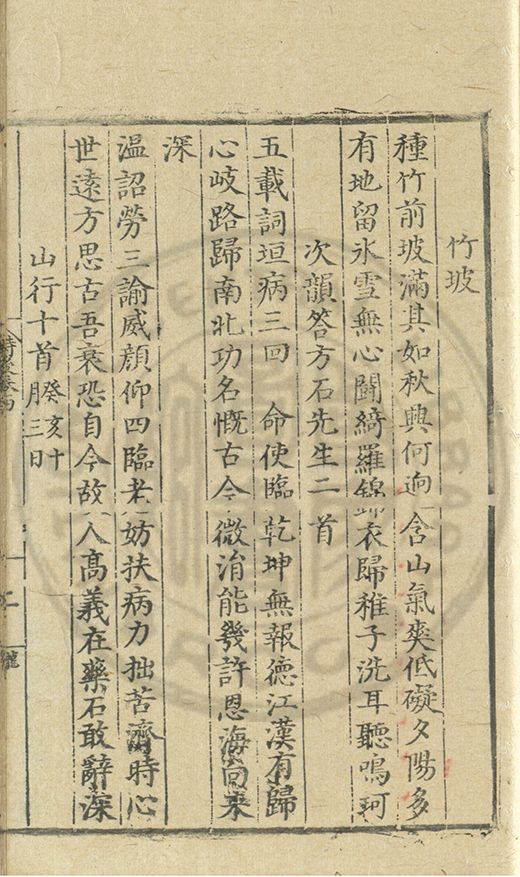 竹坡
種竹前坡滿其如秋興何逈含山氣爽低礙夕陽多
有地留氷雪無心鬪綺羅錦衣歸稚子洗耳聽鳴珂
次韻答方石先生二首
五載詞垣病三回 命使臨乾坤無報德江漢有歸
心岐路歸南北功名慨古今微涓能幾許恩海向來
深
温詔勞三諭威顔仰四臨老妨扶病力拙苦濟時心
世遠方思古吾衰恐自今故人高義在藥石敢辭深
山行十首癸亥十月三日